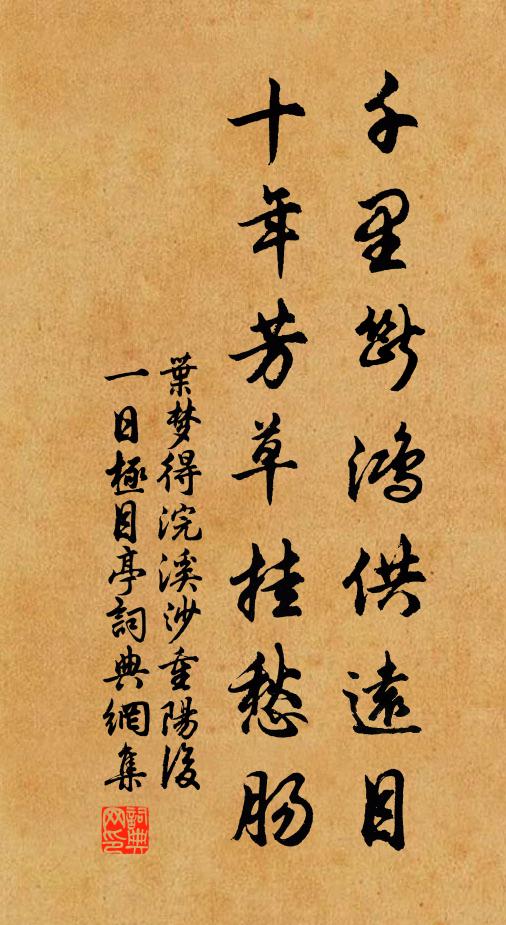 千里斷鴻供遠目
十年芳草挂愁腸
葉梦得浣溪沙重陽後
一日極目亭詞典網集
詞典
网印